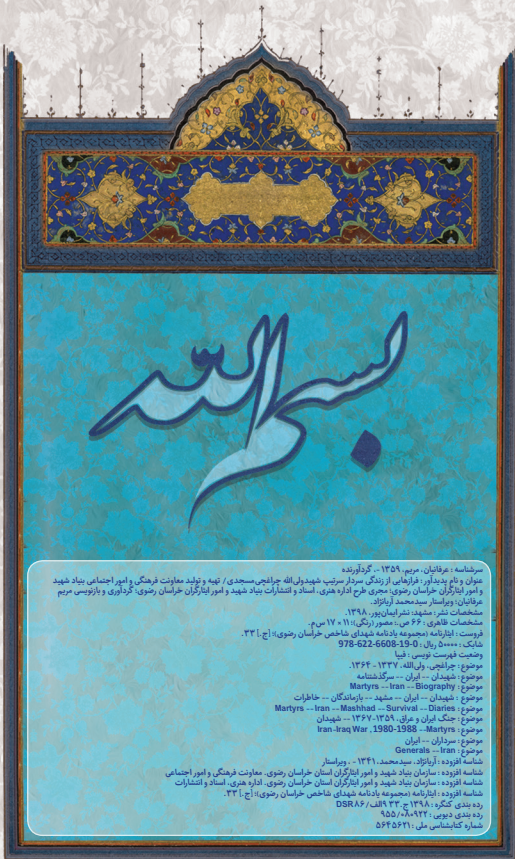 بسم الله
سرشناسه : عرفانیان، مریم، ۱۳۵۹ -، گردآورنده
عنوان و نام پدیدآور : فرازهایی از زندگی سردار سرتیپ شهیدولی‌الله چراغچی‌مسجدی / تهیه و تولید معاونت فرهنگی و امور اجتماعی بنیاد شهید
و امور ایثارگران خراسان رضوی؛ مجری طرح اداره هنری، اسناد و انتشارات بنیاد شهید و امور ایثارگران خراسان رضوی؛ گردآوری و بازنویسی مریم
عرفانیان؛ ویراستار سیدمحمد آریانژاد.
مشخصات نشر : مشهد: نشر ایمان‌پور، ۱۳۹۸.
مشخصات ظاهری : ۶۶ ص.: مصور (رنگی)؛ ۱۱ × ۱۷ س‌م.
فروست : ایثارنامه (مجموعه یادنامه شهدای شاخص خراسان رضوی)؛ [ج.] ۳۳.
شابک : ۵۰۰۰۰ ریال : 978-622-6608-19-0
وضعیت فهرست نویسی : فیپا
موضوع : چراغچی، ولی‌الله، ۱۳۳۷ - ۱۳۶۴.
موضوع : شهیدان -- ایران -- سرگذشتنامه
موضوع : Martyrs -- Iran -- Biography
موضوع : شهیدان -- ایران -- مشهد -- بازماندگان -- خاطرات
موضوع : Martyrs -- Iran -- Mashhad -- Survival -- Diaries
موضوع : جنگ ایران و عراق، ۱۳۵۹-۱۳۶۷ -- شهیدان
موضوع : Iran-Iraq War, 1980-1988 -- Martyrs
موضوع : سرداران -- ایران
موضوع : Generals -- Iran
شناسه افزوده : آریانژاد، سیدمحمد، ۱۳۴۱ - ، ویراستار
شناسه افزوده : سازمان بنیاد شهید و امور ایثارگران استان خراسان رضوی. معاونت فرهنگی و امور اجتماعی
شناسه افزوده : سازمان بنیاد شهید و امور ایثارگران استان خراسان رضوی. اداره هنری، اسناد و انتشارات
شناسه افزوده : ایثارنامه (مجموعه یادنامه شهدای شاخص خراسان رضوی)؛ [ج.] ۳۳.
رده بندی کنگره : ۱۳۹۸ ج.۳۳ ۹الف/DSR۸۶
رده بندی دیویی : ۹۵۵/۰۸۰۹۲۲
شماره کتابشناسی ملی : ۵۶۴۵۶۲۱